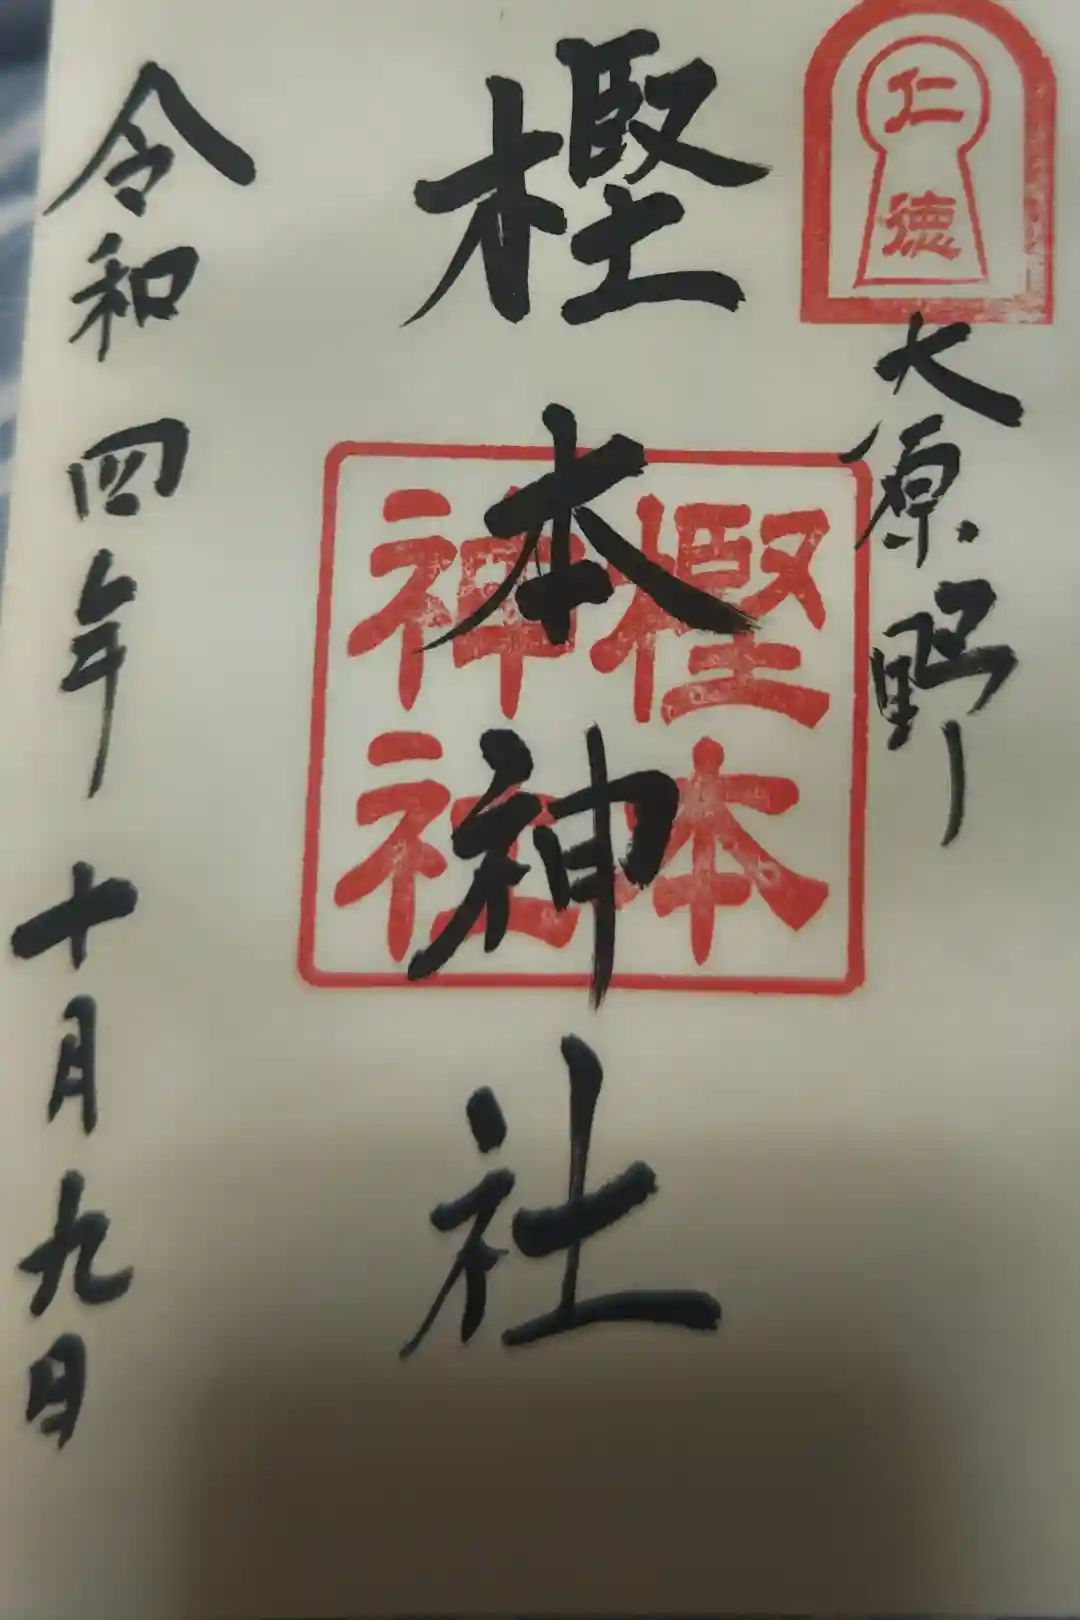 仁徳
大原野
樫本神社
樫本
神社
令和四年十月九日